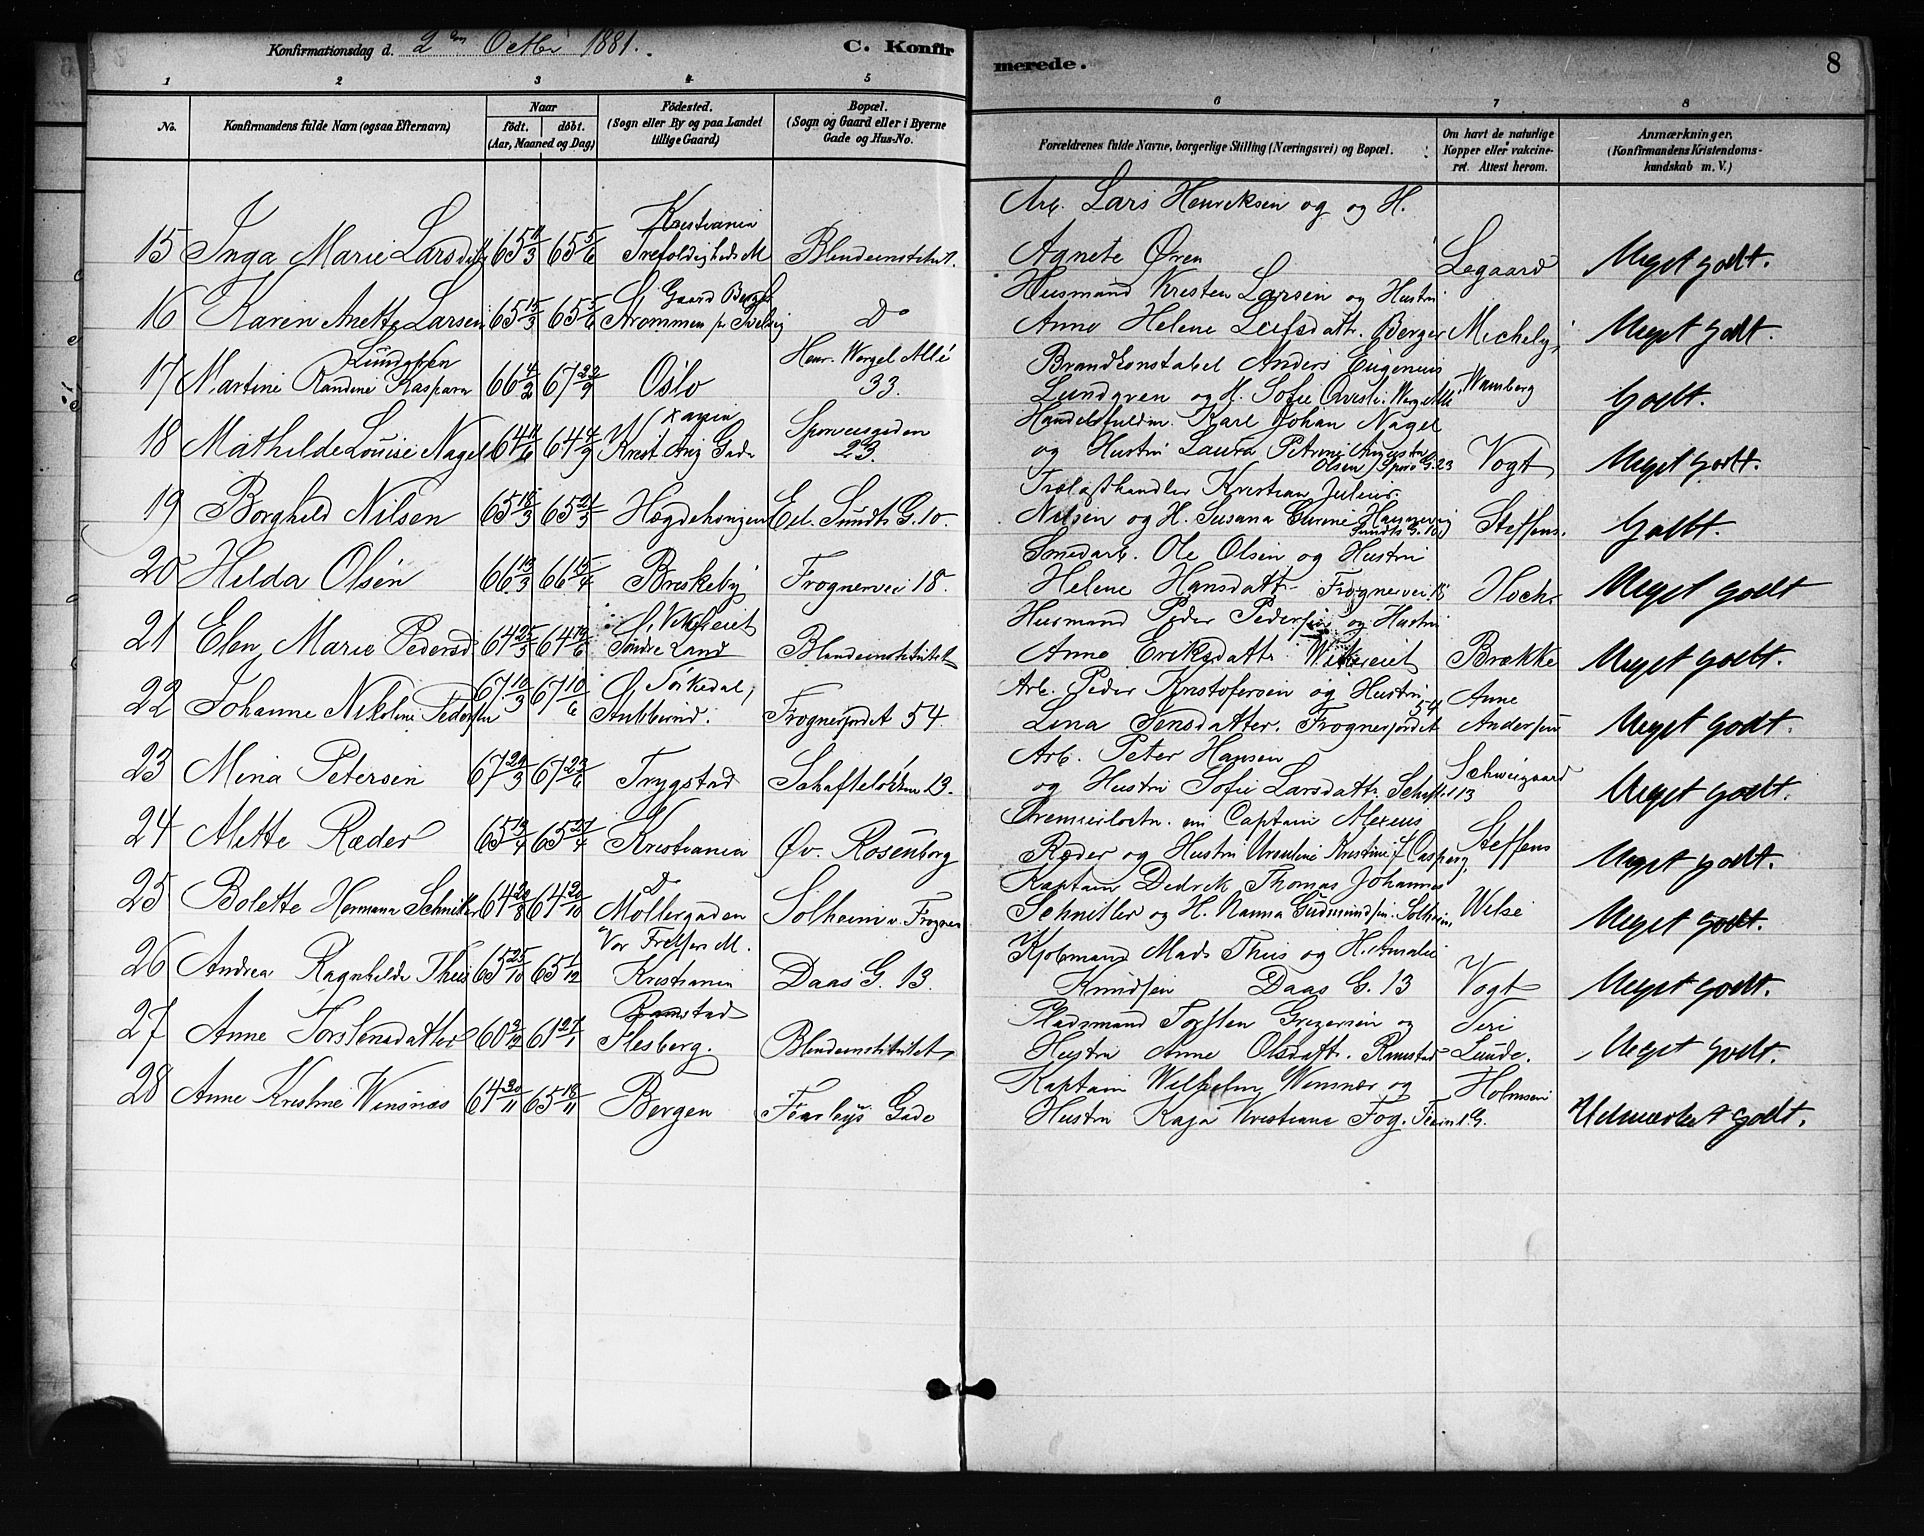 Konfirmationsdag d. 2den Octbr 1881.
C. Konfirmerede.
8
1 2 3 4 5 6 7 8
No.
Konfirmandens fulde Navn (ogsaa Efternavn)
Naar
födt. döbt.
(Aar, Maaned og Dag)
Födested.
(Sogn eller By og paa Landet tillige Gaard)
Bopæl.
(Sogn og Gaard eller i Byerne Gade og Hus-No.
Forældrenes fulde Navne, borgerlige Stilling (Næringsvei) og Bopæl.
Om havt de naturlige Kopper eller vakcineret. Attest herom.
Anmærkninger.
(Konfirmandens Kristendomskundskab m. V.)
15 Inga Marie Larsdtr 65 11/3 65 5/6 Kristiania Trefoldigheds M Blindeinstitut. Arb. Lars Henriksen og og H. Agnete Øren Legaard Meget godt.
16 Karen Anette Larsen 65 15/3 65 5/6 Gaard Berger Strømmen pr Svelvig Do Husmand Kristen Larsen og Hustru Anne Helene Leifsdatr. Berger Michelsj Meget godt.
17 Martine Randine Kaspara Lundgren 66 4/2 67 22/9 Oslo Henr. Wergel Allé 33. Brandkonstabel Anders Eugenius Lundgren og H. Sofie Wamberg Godt.
18 Mathilde Louise Nagel 64 11/6 64 4/9 Krist Aug Gade Sporveisgaden 23. Handelsfuldm. Karl Johan Nagel og Hustru Laura Petrine Augusta Olsen Sporv G. 23 Vogt Meget godt.
19 Borghild Nilsen 65 18/3 65 21/5 Hægdehaugen Eil. Sundts G. 10. Trælasthandler Kristian Julius Nilsen og H. Susana Gurine Sundts G. 10 Steffens. Godt.
20 Hilda Olsen 66 13/3 66 15/4 Briskeby Frognervei 18. Smedarb. Ole Olsen og Hustru Helene Hansdatr Frognervei 18 Hoch. Meget godt
21 Elen Marie Pedersd 64 25/5 64 19/6 Søndre Land Blindeinstitutet Husmand Peder Pedersen og Hustru Anne Eriksdatr. Brække Meget godt.
22 Johanne Nikoline Pedersen 67 10/3 67 10/6 Sørkedal, Stubberud. Frognerjordet 54 Arb. Peder Kristofersen og Hustru Lina Jensdatter. Frognerjordet 54 Anne Andersen Meget godt.
23 Mina Petersen 67 20/3 67 23/6 Trygstad Schafteløkken 13. Arb. Peter Hansen og Hustru Sofie Larsdatr. Schaft. 13 Schweigaard Meget godt.
24 Mette Ræder 65 13/4 65 27/4 Kristiania Øv. Rosenborg Premierloitn. nu Captain Alexius Ræder og Hustru Ursuline Kristine f Casperg Steffens Meget godt.
25 Bolette Hermana Schnitler 64 22/8 64 20/10 Møllergaden Solheim v. Frogner Kaptain Didrik Thomas Johannes Schnitler og H. Nanna Gudmundsen. Solheim Wilse Meget godt.
26 Andrea Ragnhilde Thiis 65 25/10 65 1/12 Vor Frelsers M. Kristiania Daas G. 13. Kjøbmand Mads Thiis og H. Amalie Knudsen Daas G. 13 Vogt Meget godt.
27 Anne Torstensdatter 60 2/12 61 27/1 Ramstad Flesberg. Blindeinstitutet Pladsmand Torsten Gregersen og Hustru Anne Olsdatr. Ramstad Lunde. Meget godt.
28 Anne Kristine Winsnæs 64 30/11 65 18/11 Bergen Fearleys Gade Kaptain Wilhelm Winsnæs og Hustru Kaja Kristiane Fog. Holmsen Udmærket godt.